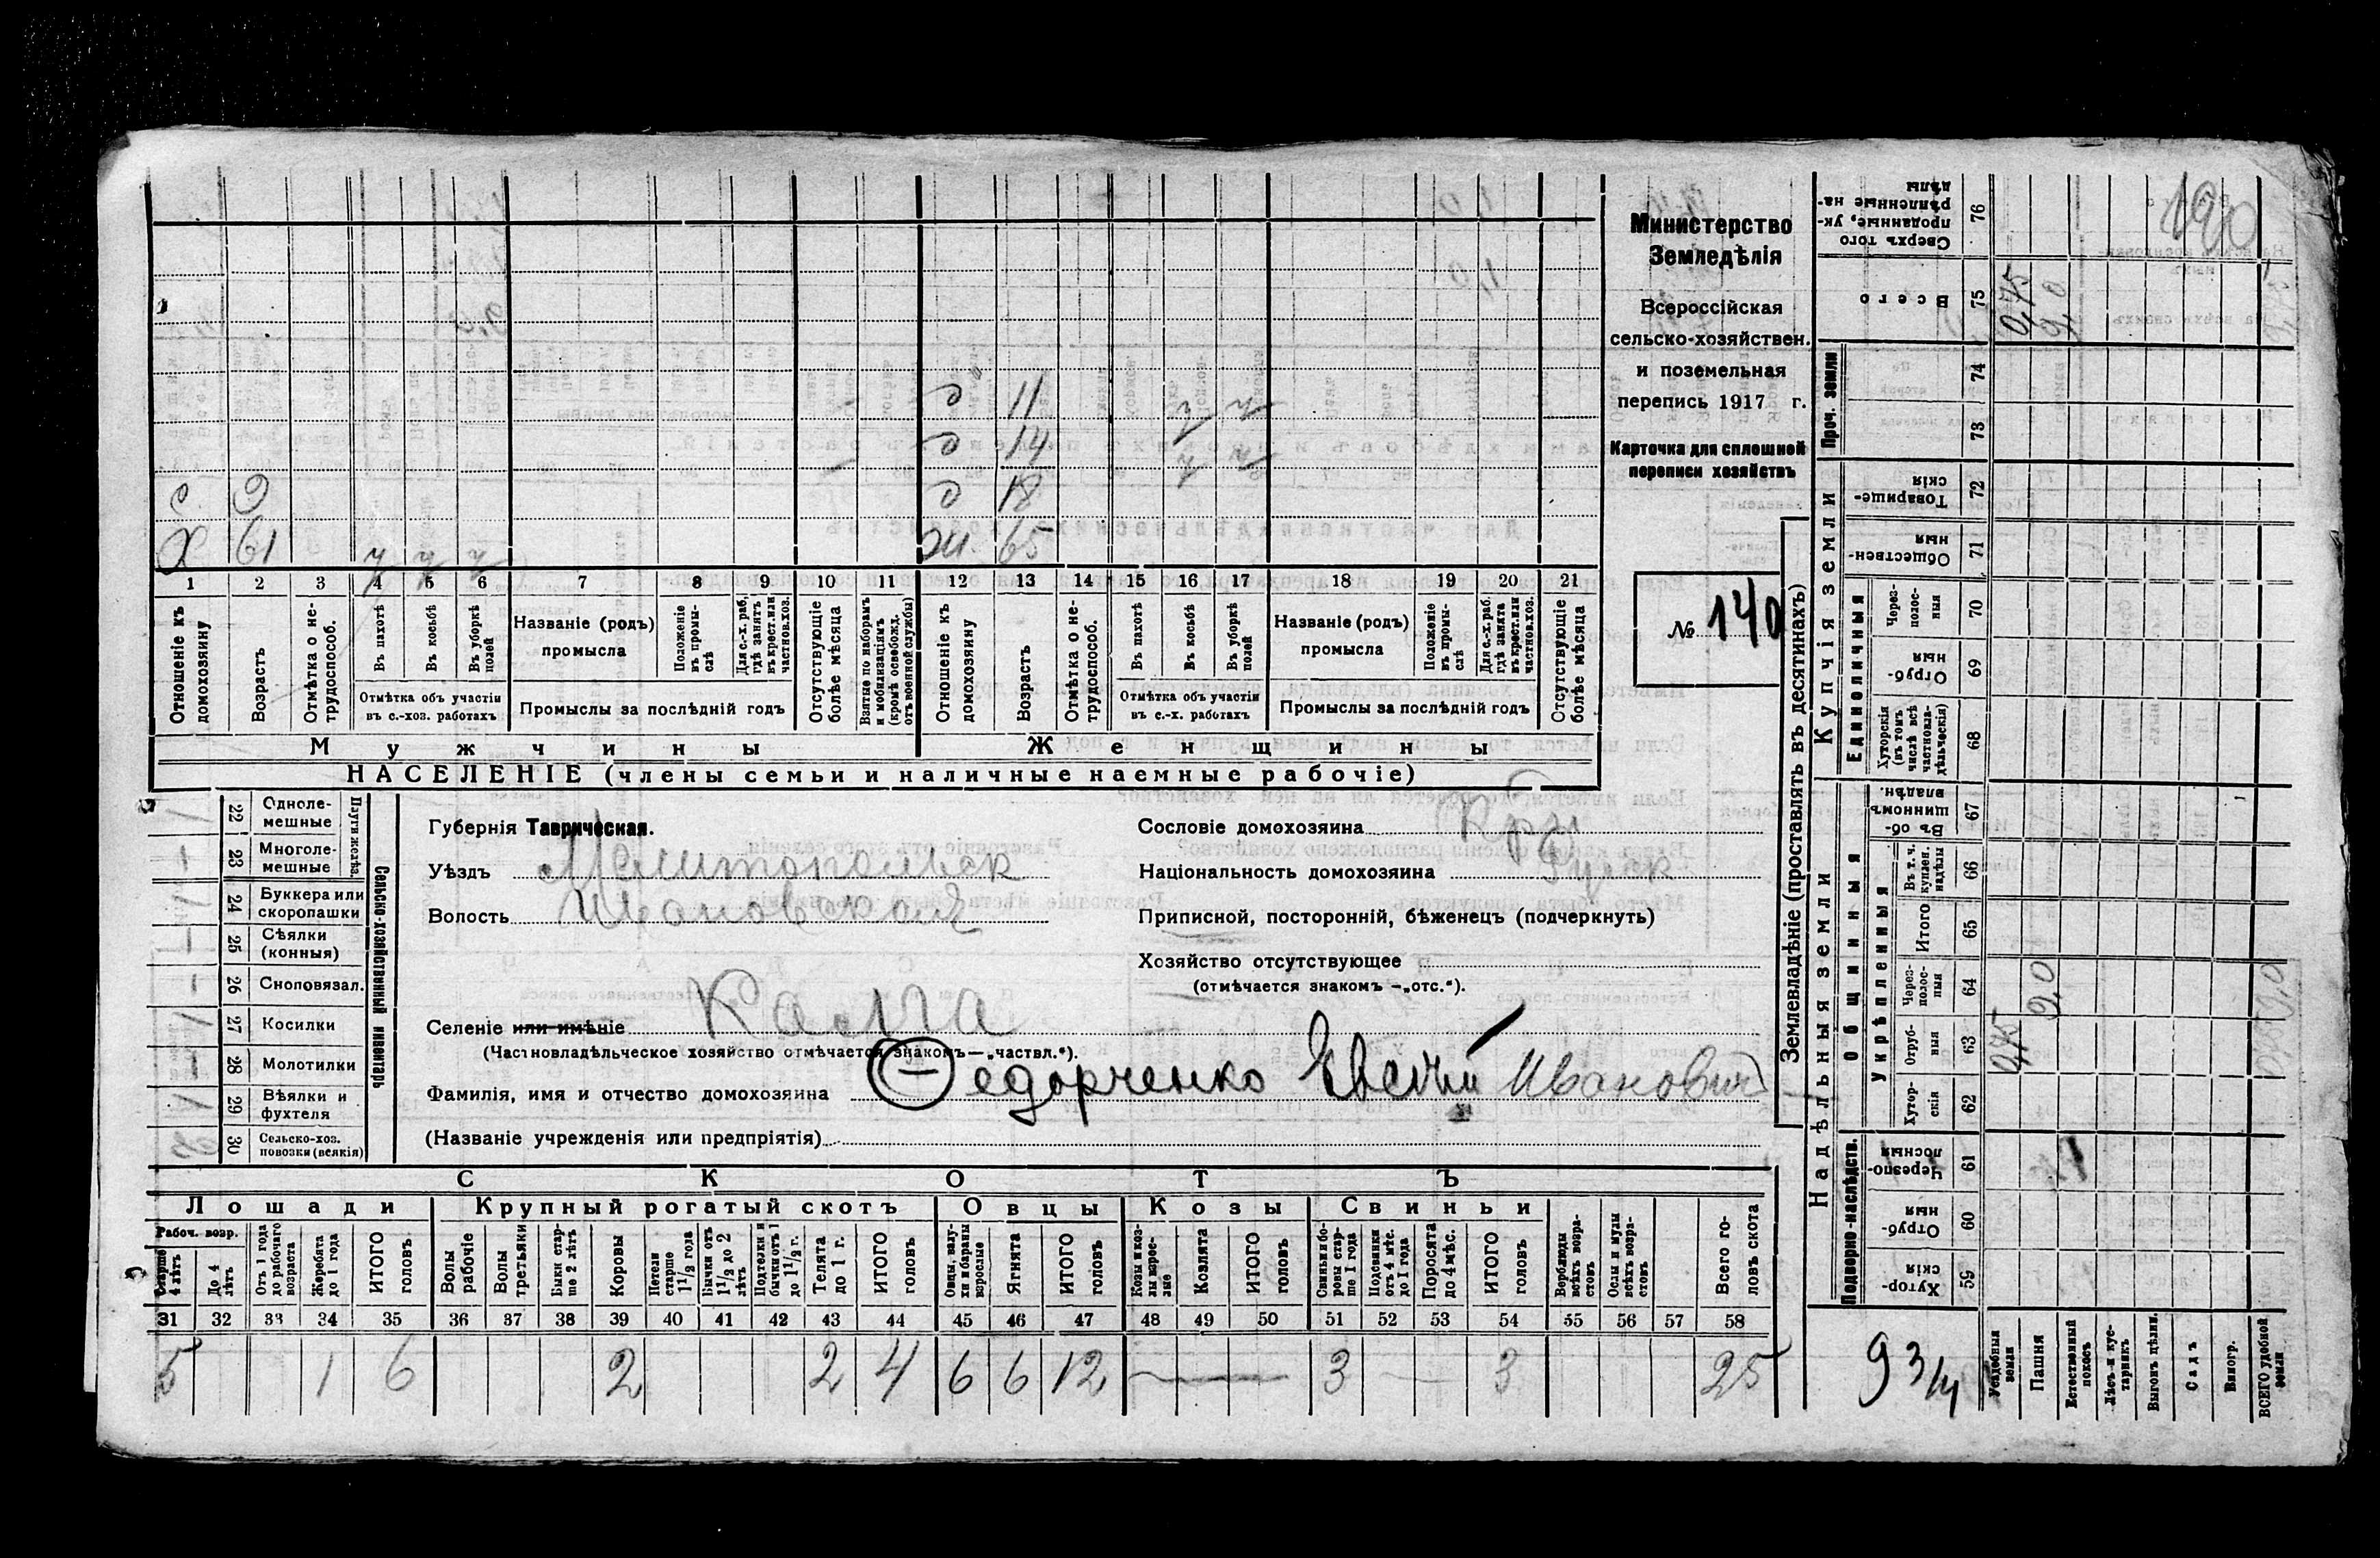 Министерство
Земледѣлія
Всероссійская
сельско-хозяйствен.
и поземельная
перепись 1917 г.
Карточка для сплошной
переписи хозяйствъ
№ 140
с 11
с 14
с. 9 с 18
Х 61 ж. 65
1 2 3 4 5 6 7 8 9 10 11 12 13 14 15 16 17 18 19 20 21
Отношеніе къ домохозяину
Возрастъ
Отмѣтка о не-трудоспособ.
Въ пахотѣ
Въ косьбѣ
Въ уборкѣ полей
Отмѣтка объ участіи
въ с.-хоз. работахъ
Названіе (родъ)
промысла
Положеніе въ промы-слѣ
Для с.-х. раб. гдѣ занятъ въ крест. или частнов. хоз.
Промыслы за послѣдній годъ
Отсутствующіе болѣе мѣсяца
Взятые по наборамъ и мобилизаціямъ (кромѣ освобожд. отъ военной службы)
Отношеніе къ домохозяину
Возрастъ
Отмѣтка о не-трудоспособ.
Въ пахотѣ
Въ косьбѣ
Въ уборкѣ полей
Отмѣтка объ участіи
въ с.-х. работахъ
Названіе (родъ)
промысла
Положеніе въ промы-слѣ
Для с.-х. раб. гдѣ занята въ крест. или частнов. хоз.
Промыслы за послѣдній годъ
Отсутствующіе болѣе мѣсяца
Мужчины Женщины
НАСЕЛЕНІЕ (члены семьи и наличные наемные рабочіе)
Сельско-хозяйственный инвентарь
Плуги желѣз.
22 Одноле-мешные
23 Многоле-мешные
24 Буккера или скоропашки
25 Сѣялки (конныя)
26 Сноповязал.
27 Косилки
28 Молотилки
29 Вѣялки и фухтеля
30 Сельско-хоз. повозки (всякія)
Губернія Таврическая.
Уѣздъ Мелитопольск
Волость Ивановская
Селеніе или имѣніе
(Частновладѣльческое хозяйство отмѣчается знакомъ—„частвл.“).
Фамилія, имя и отчество домохозяина Ѳедорченко Евсѣй Иванович
(Названіе учрежденія или предпріятія)
Сословіе домохозяина Кр
Національность домохозяина Русск
Приписной, посторонній, бѣженецъ (подчеркнуть)
Хозяйство отсутствующее
(отмѣчается знакомъ —„отс.“).
СКОТЪ
Лошади Крупный рогатый скотъ Овцы Козы Свиньи
Рабоч. возр.
Старше 4 лѣтъ
До 4 лѣтъ
Отъ 1 года до рабочаго возраста
Жеребята до 1 года
ИТОГО головъ
Волы рабочіе
Волы третьяки
Быки стар-ше 2 лѣтъ
Коровы
Нетели старше 1 1/2 года
Бычки отъ 1 1/2 до 2 лѣтъ
Подтелки и бычки отъ 1 до 1 1/2 г.
Телята до 1 г.
ИТОГО головъ
Овцы, валу-хи и бараны взрослые
Ягнята
ИТОГО головъ
Козы и коз-лы взрос-лые
Козлята
ИТОГО головъ
Свиньи и бо-ровы стар-ше 1 года
Подсвинки отъ 4 мѣс. до 1 года
Поросята до 4 мѣс.
ИТОГО головъ
Верблюды всѣхъ возра-стовъ
Ослы и мулы всѣхъ возра-стовъ
Всего го-ловъ скота
31 32 33 34 35 36 37 38 39 40 41 42 43 44 45 46 47 48 49 50 51 52 53 54 55 56 57 58
5 1 6 2 2 4 6 6 12 3 3 25
Землевладѣніе (проставлять въ десятинахъ)
Надѣльныя земли Купчія земли Проч. земли
Подворно-наслѣдств.
Общинныя
Укрѣпленныя
Единоличныя
Сверхъ того проданные, ук-рѣпленные на-дѣлы 76
Всего 75
74
73
Товарище-скія 72
Обществен-ныя 71
Через-полос-ныя 70
Отруб-ныя 69
Хуторскія (въ томъ числѣ всѣ частновла-дѣльческія) 68
Въ об-щинномъ владѣн. 67
Въ т. ч. купчен. надѣлы 66
Итого 65
Через-полос-ныя 64
Отруб-ныя 63
Хутор-скія 62
Черезпо-лосныя 61
Отруб-ныя 60
Хутор-скія 59
0,75 9,0
9,0
0,75
190
9 3/4
Усадебныя земли
Пашня
Естественный покосъ
Лѣсъ и кус-тарникъ
Выгонъ цѣлин.
Садъ
Виногр.
ВСЕГО удобной земли